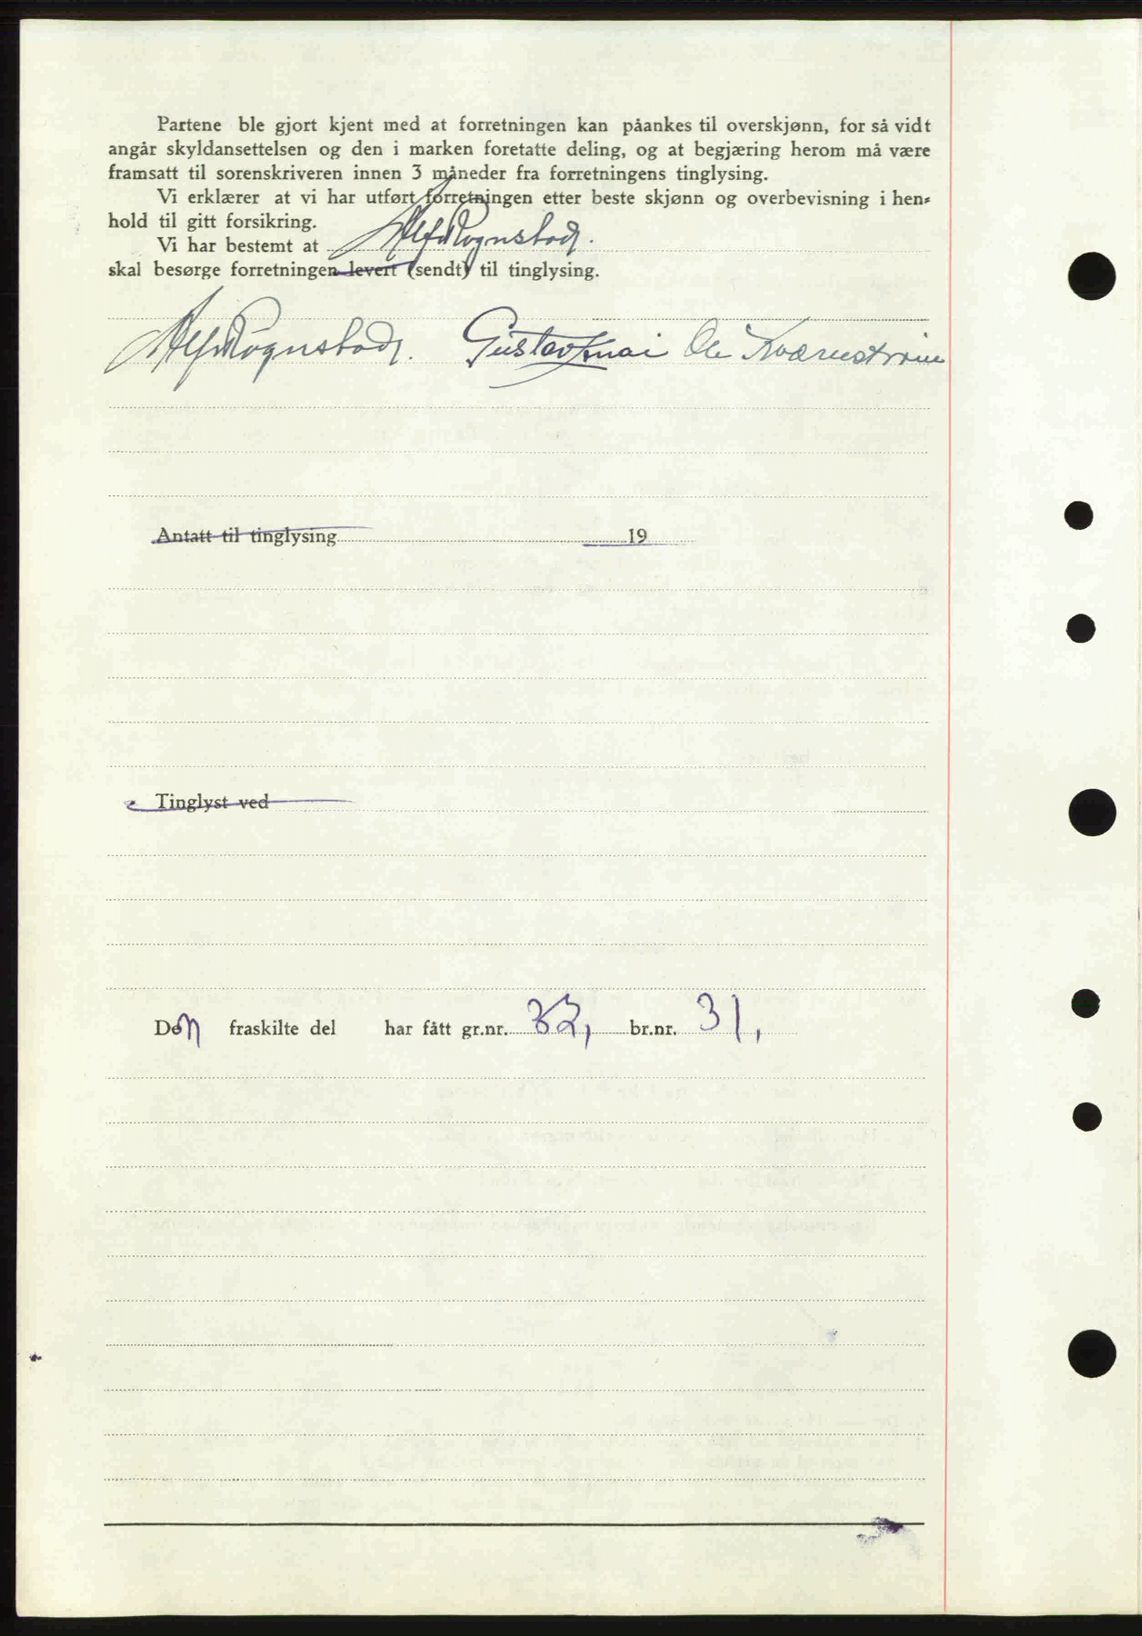 Partene ble gjort kjent med at forretningen kan påankes til overskjønn, for så vidt
angår skyldansettelsen og den i marken foretatte deling, og at begjæring herom må være
framsatt til sorenskriveren innen 3 måneder fra forretningens tinglysing.
Vi erklærer at vi har utført forretningen etter beste skjønn og overbevisning i hen-
hold til gitt forsikring.
Vi har bestemt at Alf Rognstad.
skal besørge forretningen levert (sendt) til tinglysing.
Alf Rognstad. Gustav Ole Kværnstrøm
Antatt til tinglysing 19
Tinglyst ved
Den fraskilte del har fått gr.nr. 32, br.nr. 31,